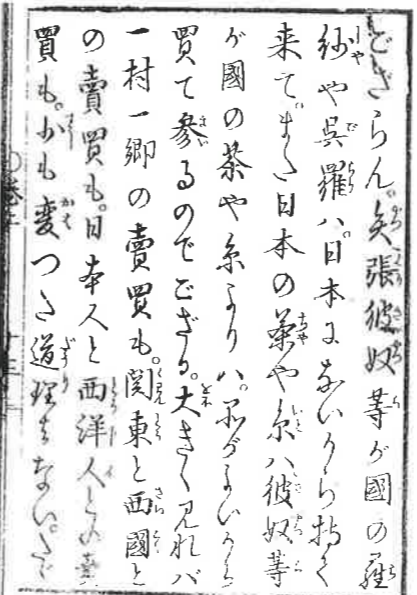 ござらん。矢張彼奴等が國の羅
紗や呉羅ハ。日本にないから持て
来て。また日本の茶や糸ハ彼奴等
が國の茶や糸よりハ。品がよいから
買て参るのでござる。大きく見れバ
一村一郷の賣買も。関東と西國と
の賣買も。日本人と西洋人との賣
買も。少も変つた道理はない。たゞ